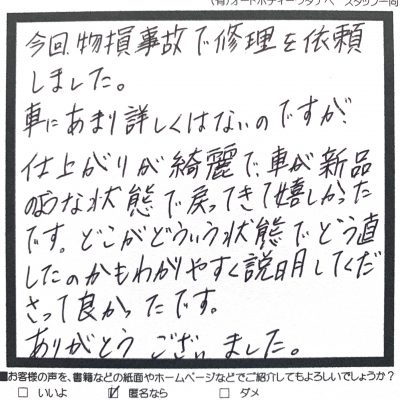 (有)オートボディーワタナベ スタッフ一同
今回、物損事故で修理を依頼
しました。
車にあまり詳しくはないのですが、
仕上がりが綺麗で、車が新品
のような状態で戻ってきて嬉しかった
です。どこがどういう状態でどう直
したのかもわかりやすく説明してくだ
さって良かったです。
ありがとうございました。
■お客様の声を、書籍などの紙面やホームページなどでご紹介してもよろしいでしょうか?
□ いいよ ☑ 匿名なら □ ダメ